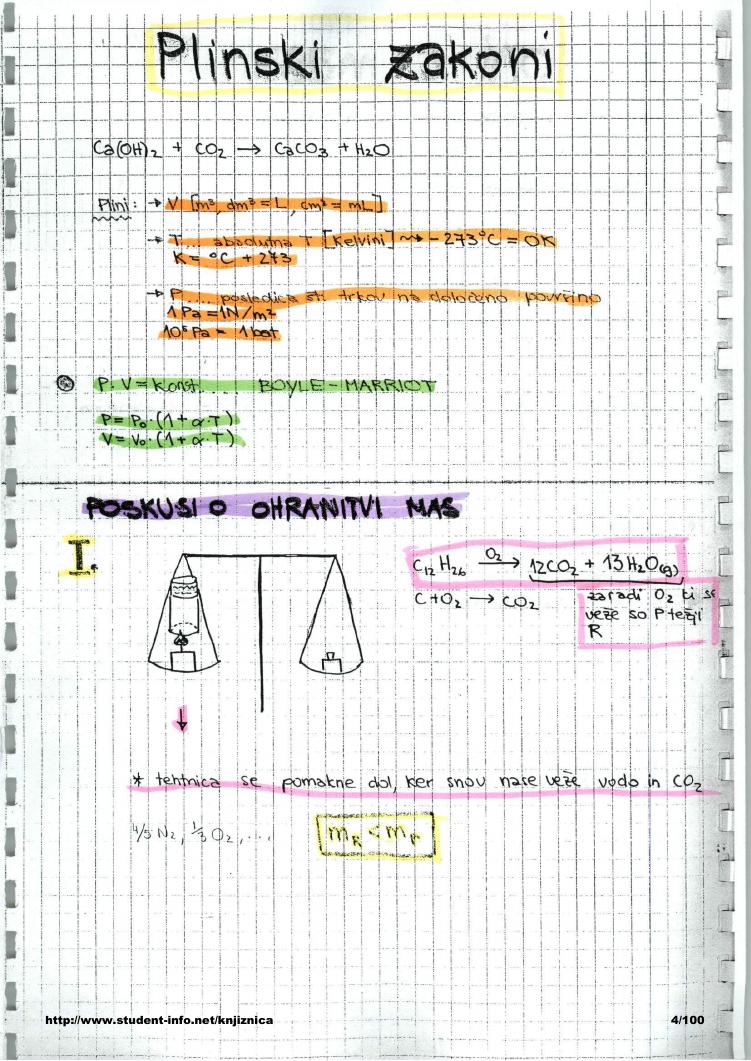 Plinski zakoni
Ca(OH)₂ + CO₂ → CaCO₃ + H₂O
Plini: → V [m³, dm³ = L, cm³ = mL]
→ T... absolutna T [Kelvini] ⇝ -273°C = 0K
K = °C + 273
→ P.... posledica št. trkov na določeno površino
1 Pa = 1N/m²
10⁵ Pa = 1 bar
P. V = konst..... BOYLE - MARRIOT
P = P₀·(1 + α·T)
V = V₀·(1 + α·T)
POSKUSI O OHRANITVI MAS
I.
C₁₂H₂₆ O₂→ 12CO₂ + 13H₂O(g)
C + O₂ → CO₂
zaradi O₂ ki se
veže so P težji
R
* tehtnica se pomakne dol, ker snov nase veže vodo in CO₂
4/5 N₂, 1/3 O₂, ....
mR < mP
http://www.student-info.net/knjiznica
4/100